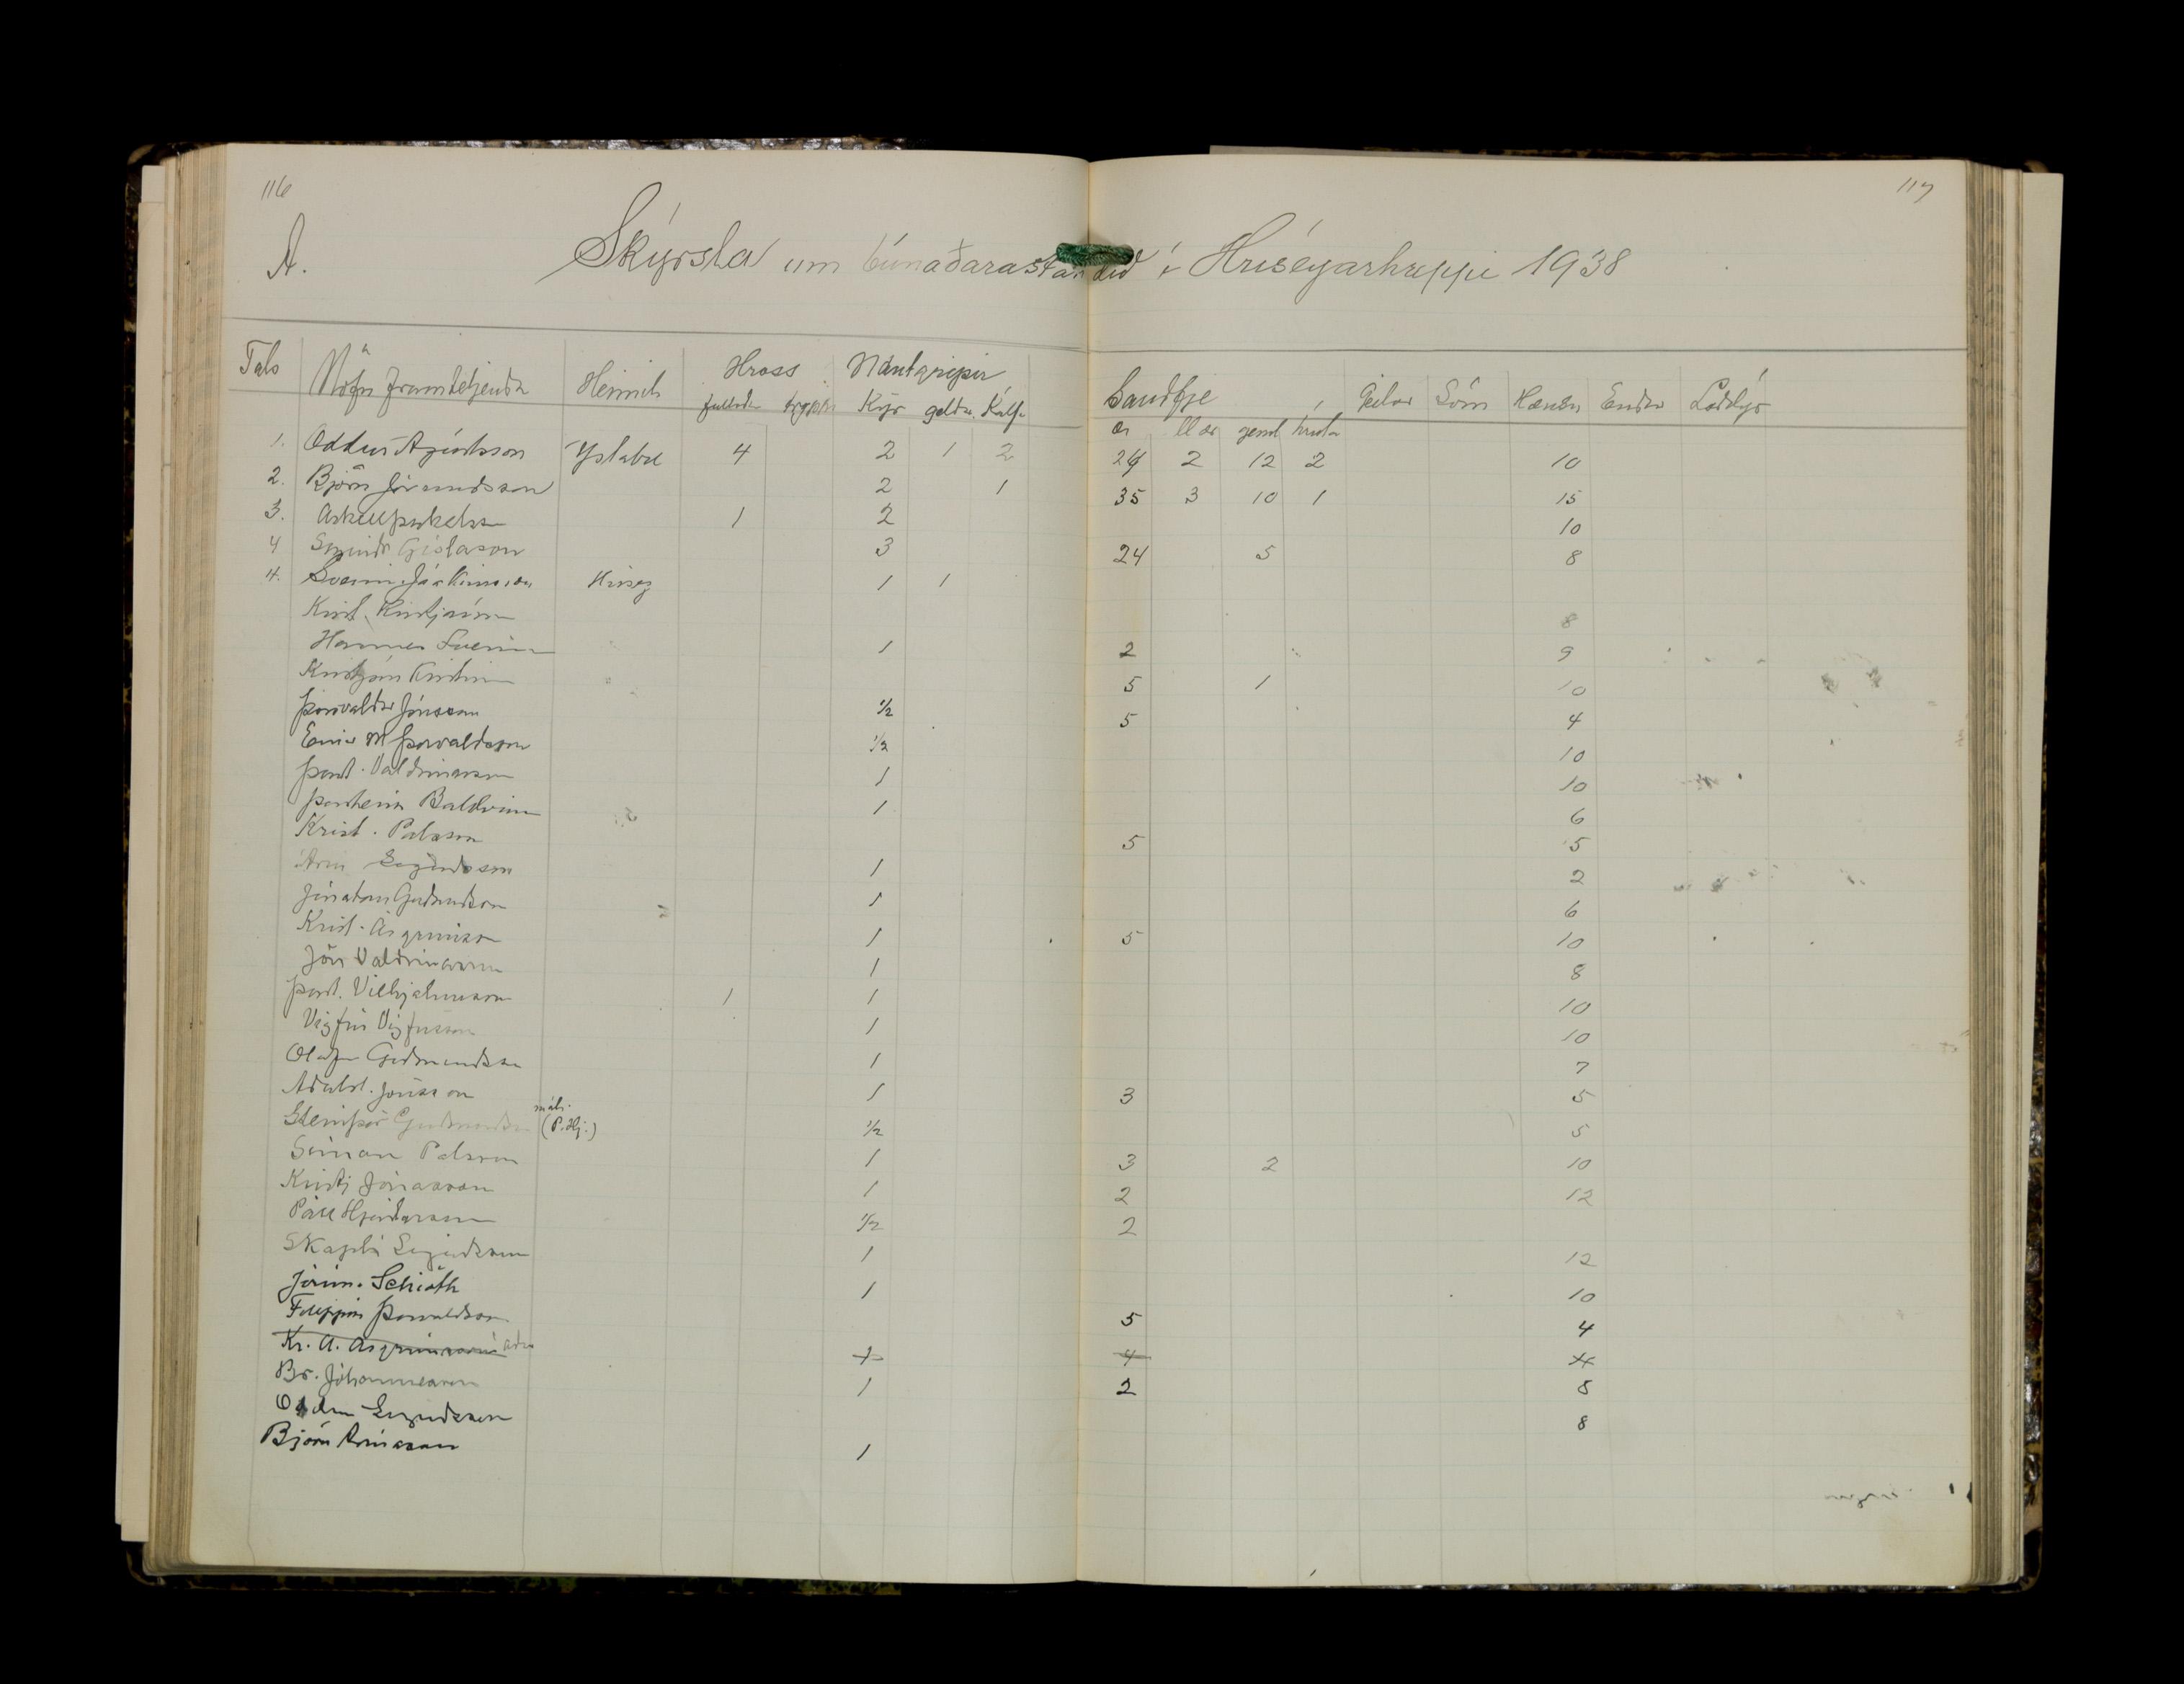 116
117
A. Skýrsla um búnaðarastandið í Hríseyarhreppi 1938
Tals Nöfn framteljenda Heimili Hross Nautgripir Sauðfje Geitur Svín Hænsn Endur Loðdýr
fullorðin tryppi Kýr geldn. Kálf. ær geml hrútar
1. Oddur Ágústsson Ystabæ 4 2 1 2 24 2 12 2 10
2. Björn Jörundsson 2 1 35 3 10 1 15
3. Áskell Þorkelss 1 2 10
4 Sigurð Gíslason 3 24 5 8
4. Hrísey 1 1
Krist. Kristjánss 8
Hannes 1 2 9
Kristján Kristins 5 1 10
Þorvaldur Jónsson 1/2 5 4
M Þorvaldsson 1/2 10
Þorst. Valdimarsson 1 10
Þorsteinn Baldvins 1 6
Krist. Pálsson 5 5
Árni 1 2
Jónatan Guðmundsson 1 6
Krist. Ásgrímsson 1 5 10
Jón Valdimarsson 1 8
Þorst. Vilhjálmsson 1 1 10
Vigfús Vigfússon 1 10
Guðmundsson 1 7
Aðalst. Jónsson 1 3 5
Steinþór Guðmundsson (P. Hj.) 1/2 5
Símon Pálsson 1 3 2 10
Kristj Jónasson 1 2 12
Páll Hjartarson 1/2 2
Skapti 1 12
Jörun. Schiöth 1 10
Filippía Þorvaldsson 5 4
Kr. A. Ásgrímsson 1 4 4
Br. Jóhannesson 1 2 8
8
Björn Árnason 1